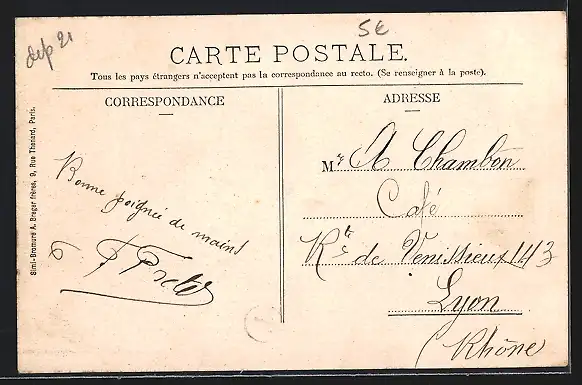 dep 21
5€
CARTE POSTALE.
Tous les pays étrangers n'acceptent pas la correspondance au recto. (Se renseigner à la poste).
CORRESPONDANCE
ADRESSE
Simi-Bromure A. Breger frères, 9, Rue Thenard, Paris.
Bonne poignée de mains
M r A Chambon
Café
Rte de Venissieux 143
Lyon
(Rhône)